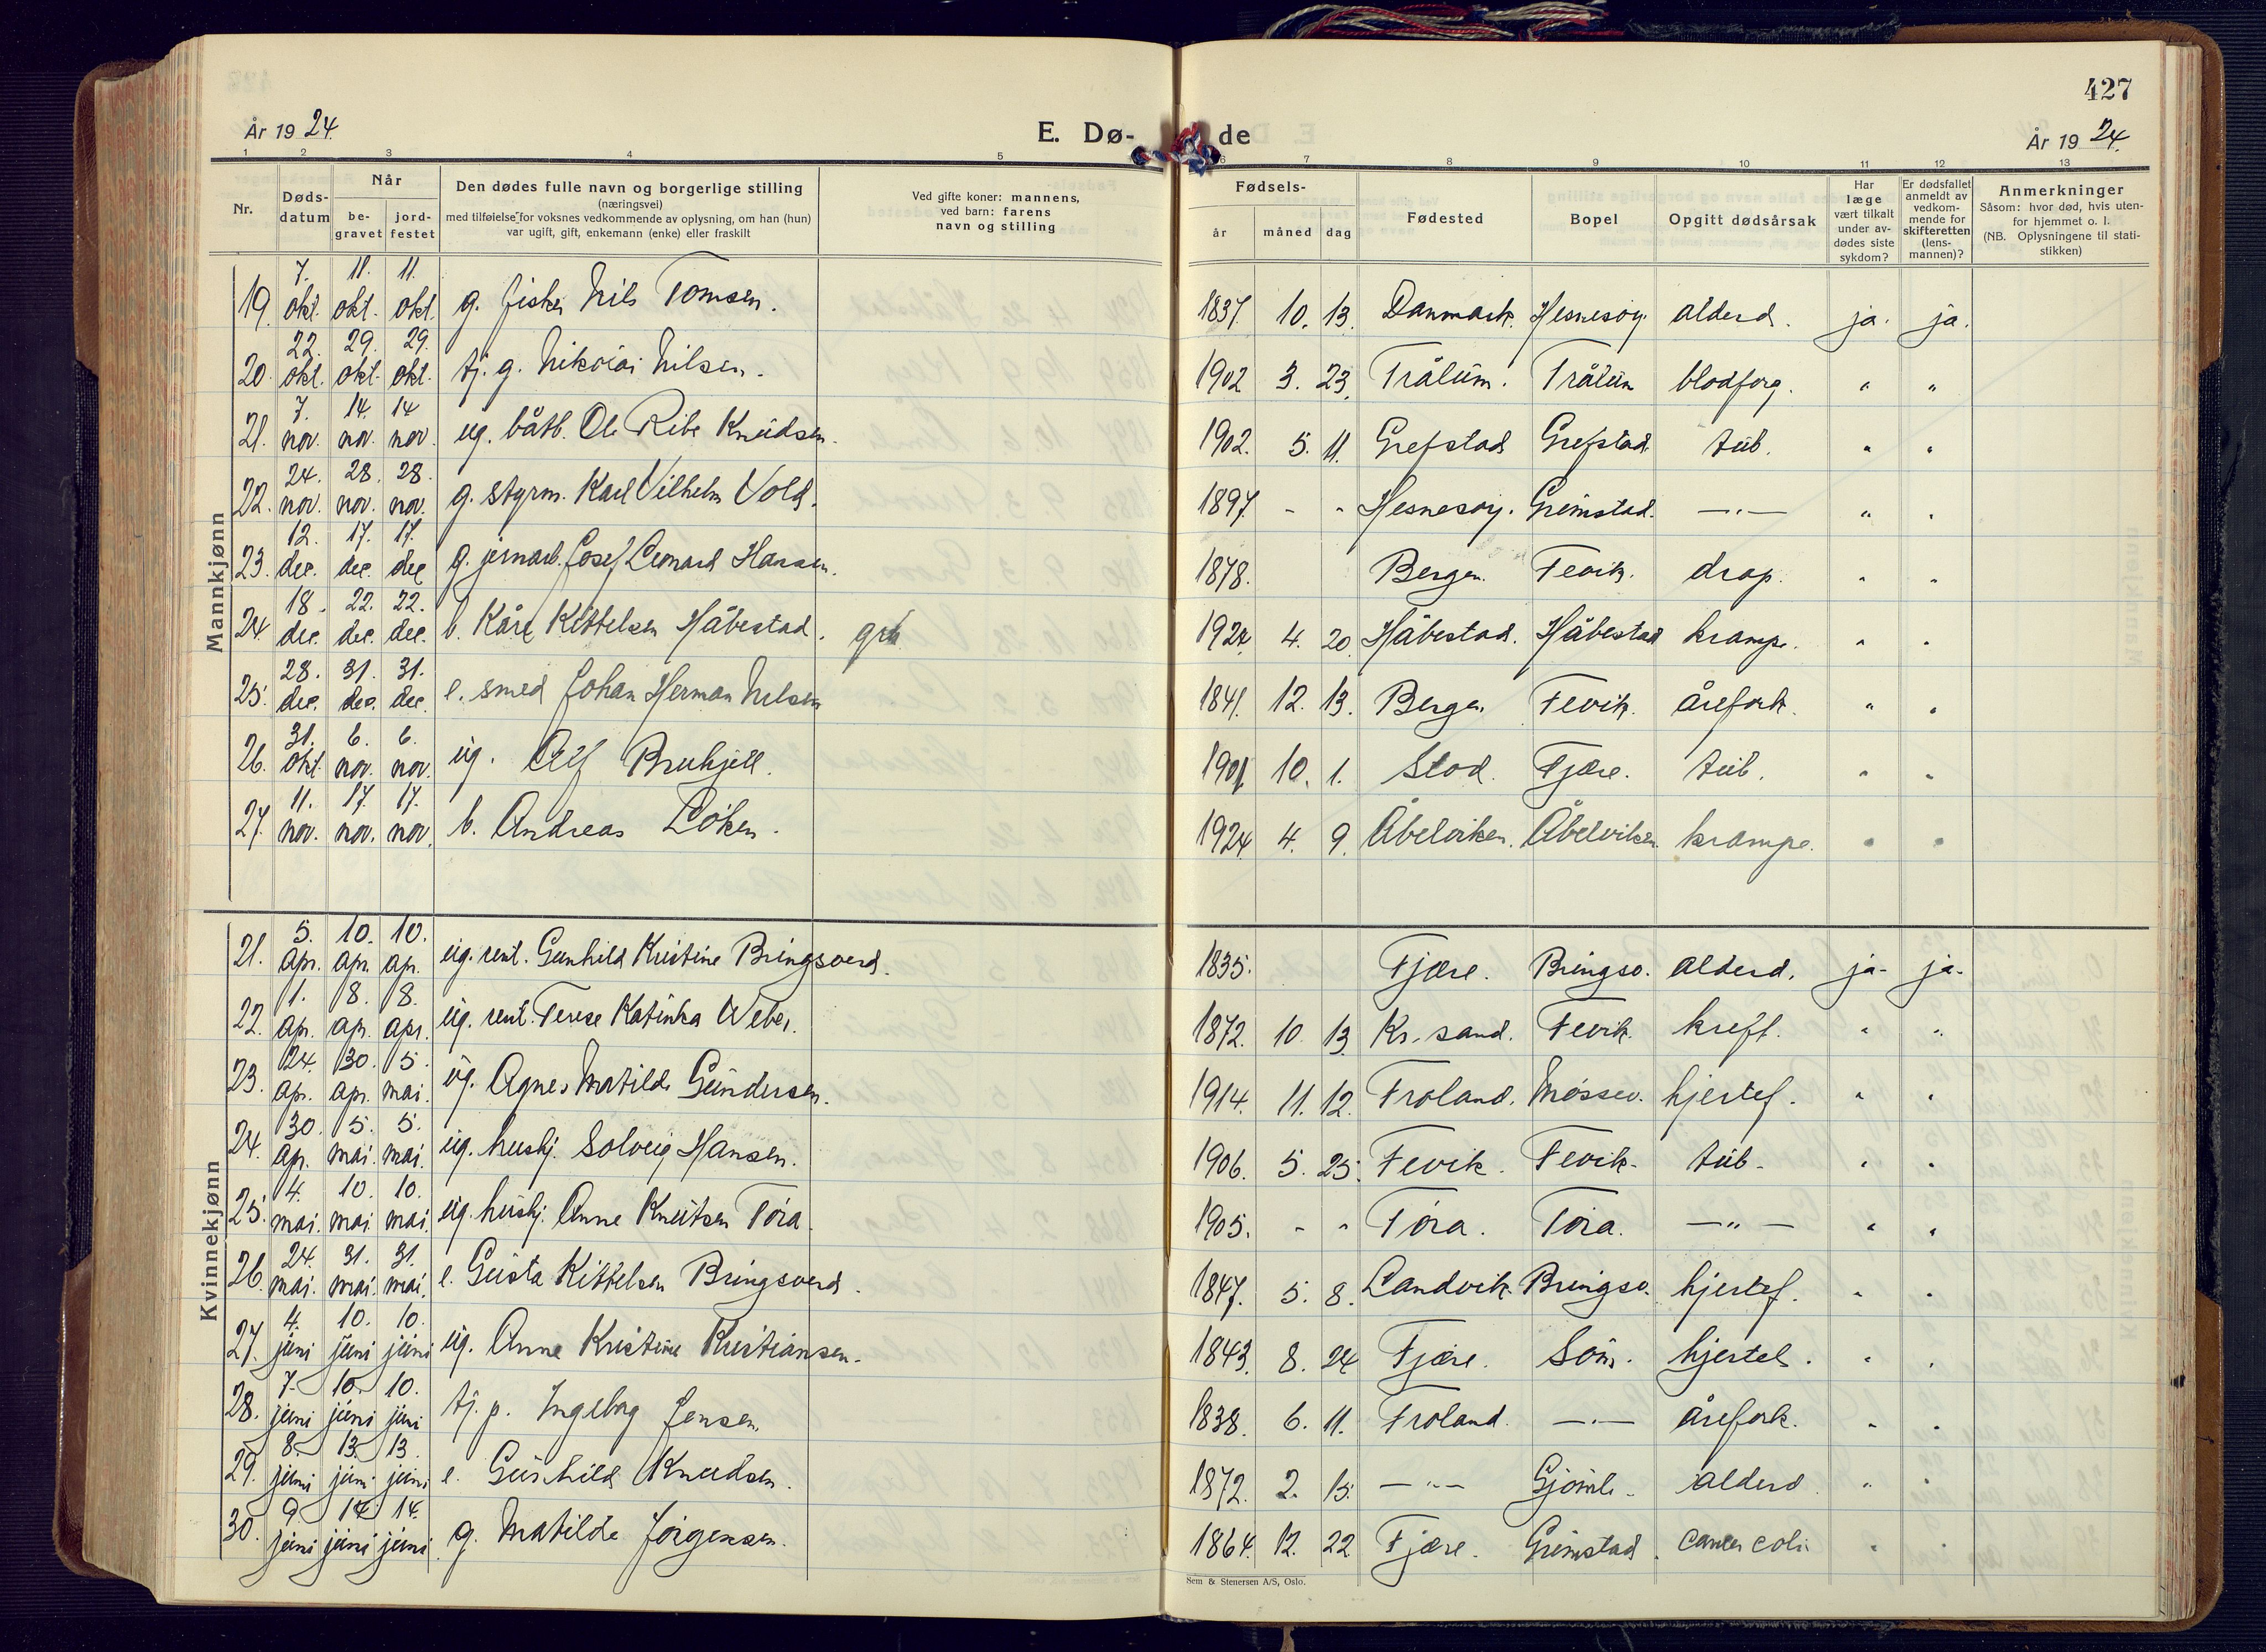 427
År 19 24.
E. Dø-
de
År 19 24.
1 2 3 4 5 6 7 8 9 10 11 12 13
Nr.
Døds-
datum
Når
be-
gravet
jord-
festet
Den dødes fulle navn og borgerlige stilling
(næringsvei)
med tilføielse for voksnes vedkommende av oplysning, om han (hun)
var ugift, gift, enkemann (enke) eller fraskilt
Ved gifte koner: mannens,
ved barn: farens
navn og stilling
Fødsels-
år måned dag
Fødested
Bopel
Opgitt dødsårsak
Har
læge
vært tilkalt
under av-
dødes siste
sykdom?
Er dødsfallet
anmeldt av
vedkom-
mende for
skifteretten
(lens-
mannen)?
Anmerkninger
Såsom: hvor død, hvis uten-
for hjemmet o. l.
(NB. Oplysningene til stati-
stikken)
Mannkjønn
19. 7. okt. 11. okt. 11. okt. g. fisker Nils Tomsen. 1837. 10. 13. Danmark. Hesnesøy. alderd. ja. ja.
20. 22. okt. 29. okt. 29. okt. tj. g. Nikolai Nilsen. 1902 3. 23. Trålum. Trålum blodforg. " "
21. 7. nov. 14. nov. 14 nov. ug. båtb. Ole Ribe Knudsen. 1902. 5. 11. Grefstad Grefstad. tub. " "
22. 24. nov. 28. nov. 28. nov. g. styrm. Karl Vilhelm Vold. 1897. - - Hesnesøy. Grimstad. —"— " "
23. 12. dec. 17. dec. 17. dec g. jernarb. Josef Leonard Hansen. 1878. Bergen. Fevik. drap. " "
24. 18. dec. 22. dec. 22. dec. b. Kåre Kittelsen Håbestad. 1924. 4. 20. Håbestad. Håbestad krampe. " "
25. 28. dec. 31. dec. 31. dec. e. smed Johan Herman Nilsen 1841. 12. 13. Bergen. Fevik. årefork. " "
26. 31. okt. 6. nov. 6. nov. ug. Alf Bruhjell. 1901 10. 1. Stod. Fjære. tub. " "
27. 11. nov. 17. nov. 17. nov. b. Andreas Løken. 1924 4. 9. Åbelviken. Åbelviken. krampe. " "
Kvinnekjønn
21. 5. apr. 10. apr. 10. ap. ug. rent. Gunhild Kristine Bringsverd. 1835. Fjære. Bringsv. alderd. ja. ja.
22. 1. ap. 8. ap. 8. apr. ug. rent. Terese Katinka Weber. 1872. 10. 13. Kr. sand. Fevik. kreft. " "
23. 24. ap. 30. apr. 5. mai. ug. Agnes Matilde Gundersen. 1914. 11. 12. Froland. Mossev. hjertef. " "
24. 30. ap. 5. mai. 5. mai. ug. hushj. Solveig Hansen. 1906. 5. 25. Fevik. Fevik. tub. " "
25. 4. mai. 10. mai. 10. mai. ug. hushj. Anne Knutsen Tora. 1905. - - Tora. Tora. —"— " "
26. 24. mai. 31. mai. 31. mai. e. Gusta Kittelsen Bringsverd. 1847. 5. 8. Landvik. Bringsv. hjertef. " "
27. 4. juni 10. juni 10. juni ug. Anne Kristine Kristiansen. 1843. 8. 24 Fjære. Søm. hjertel. " "
28. 7. juni 10. juni 10. juni tj. p. Ingeborg Jensen. 1838. 6. 11. Froland. —"— årefork. " "
29. 8. juni 13. juni 13. juni e. Gunhild Knudsen. 1872. 2. 15. —"— alderd. " "
30. 9. juni 14. juni 14. juni. g. Matilde Jørgensen. 1864. 12. 22 Fjære. Grimstad. cancer coli " "
Sem & Stenersen A/S, Oslo.